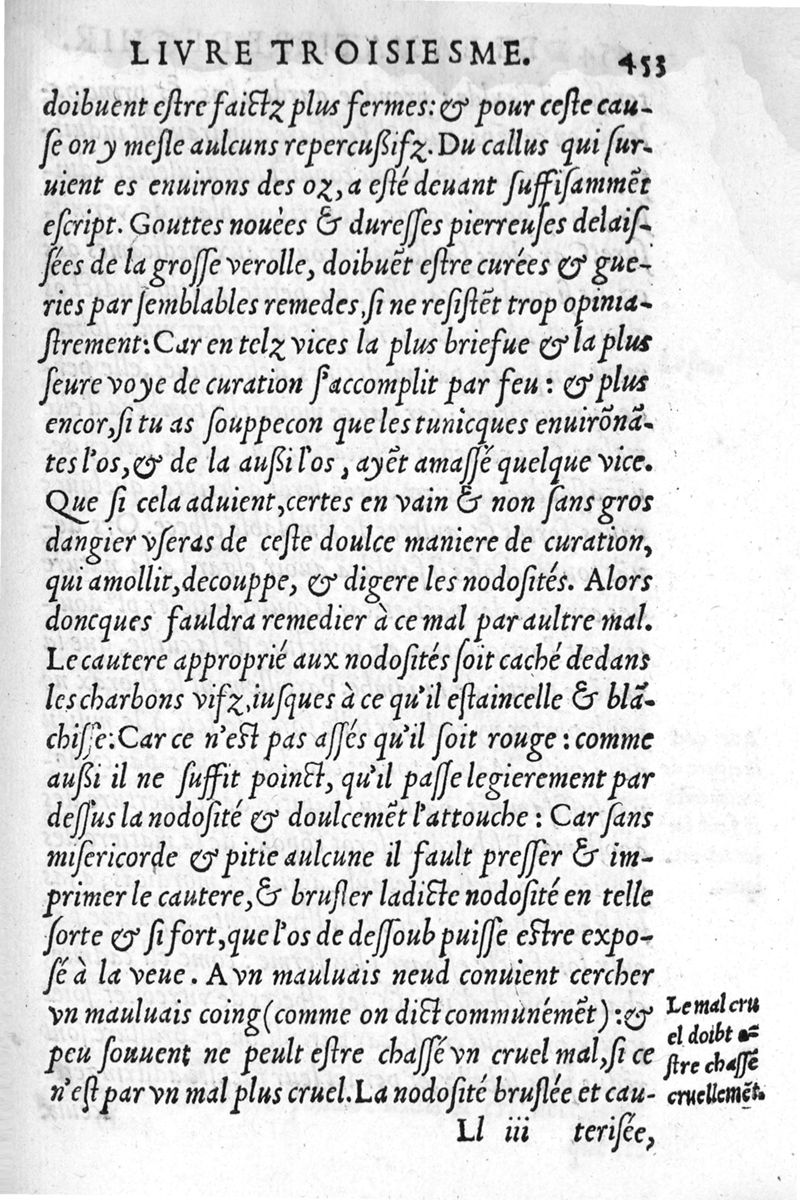 LIVRE TROISIESME. 453
doibuent eſtre faictz plus fermes: & pour ceſte cau-
ſe on y meſle aulcuns repercuſſifz. Du callus qui ſur-
uient es enuirons des oz, a eſté deuant ſuffiſammēt
eſcript. Gouttes nouées & dureſſes pierreuſes delaiſ-
ſées de la groſſe verolle, doibuēt eſtre curées & gue-
ries par ſemblables remedes, ſi ne reſiſtēt trop opinia-
ſtrement: Car en telz vices la plus briefue & la plus
ſeure voye de curation ſ'accomplit par feu: & plus
encor, ſi tu as ſouppecon que les tunicques enuirōnā-
tes l'os, & de la auſſi l'os, ayēt amaſſé quelque vice.
Que ſi cela aduient, certes en vain & non ſans gros
dangier vſeras de ceſte doulce maniere de curation,
qui amollit, decouppe, & digere les nodoſités. Alors
doncques fauldra remedier à ce mal par aultre mal.
Le cautere approprié aux nodoſités ſoit caché dedans
les charbons vifz, iuſques à ce qu'il eſtaincelle & blā-
chiſſe: Car ce n'eſt pas aſſés qu'il ſoit rouge: comme
auſſi il ne ſuffit poinct, qu'il paſſe legierement par
deſſus la nodoſité & doulcemēt l'attouche: Car ſans
miſericorde & pitie aulcune il fault preſſer & im-
primer le cautere, & bruſler ladicte nodoſité en telle
ſorte & ſi fort, que l'os de deſſoub puiſſe eſtre expo-
ſé à la veue. A vn mauluais neud conuient cercher
vn mauluais coing (comme on dict communémēt): &
peu ſouuent ne peult eſtre chaſſé vn cruel mal, ſi ce
n'eſt par vn mal plus cruel. La nodoſité bruſlée et cau-
Ll iii teriſée,
Le mal cru
el doibt e-
ſtre chaſſé
cruellemēt.